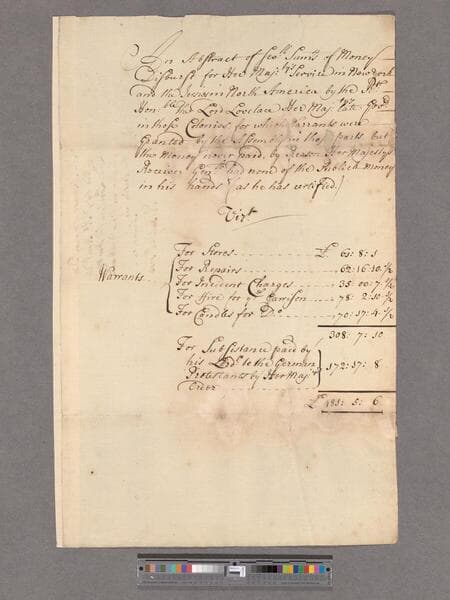 An Abstract of sev:ll Sums of Money
Disburst for Her Maj:tys Service in New York
and the Jerseys in North America by the R:t
Hon:ble the Lord Lovelace Her Maj:tys late Gov:r
in those Colonies for which Warrants were
granted by the Assembly in those parts but
the Money never paid, by Reason Her Majestys
Receiver Gen:ll had none of the Publick Money
in his hands (as he has certified.)
Viz:t
Warrants
For Stores £ 61: 8: 1
For Repairs 62: 16: 10 1/2
For Incident Charges 35: 00: 7 1/2
For Hire for ye Garrison 78: 2: 10 1/2
For Candles for D:o 70: 17: 4 1/2
308: 7: 10
For Subsistance paid by
his Ld:p to the German
Protestants by Her Maj:tys 172: 17: 8
Order
£ 481: 5: 6